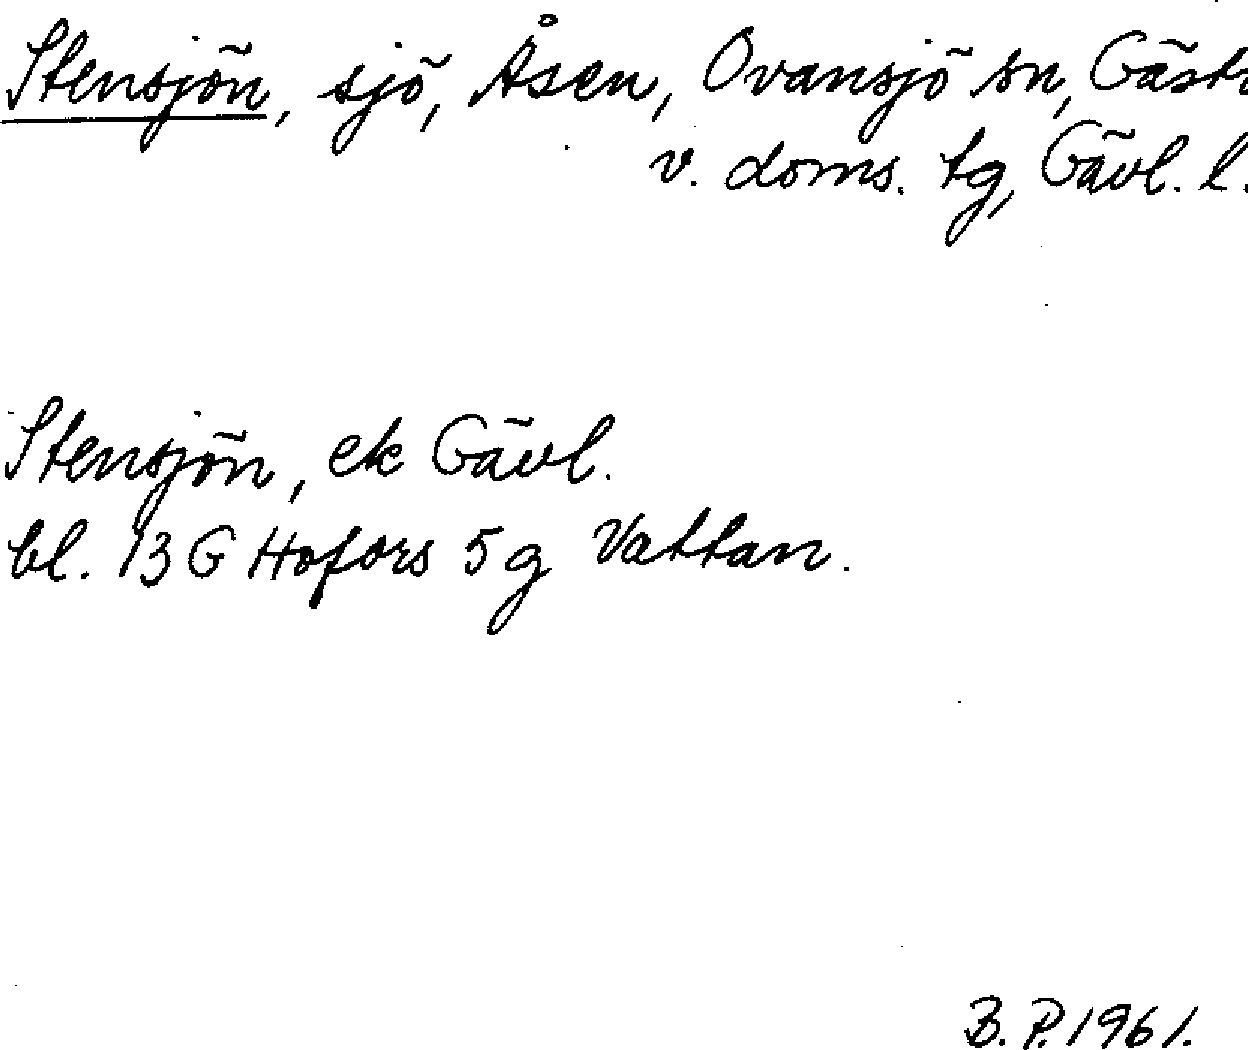 Stensjön, sjö, Åsen, Ovansjö sn, Gästr
v. doms. tg, Gävl. l.
Stensjön, ek Gävl.
bl. 13 G Hofors 5 g Vattan.
B. P. 1961.